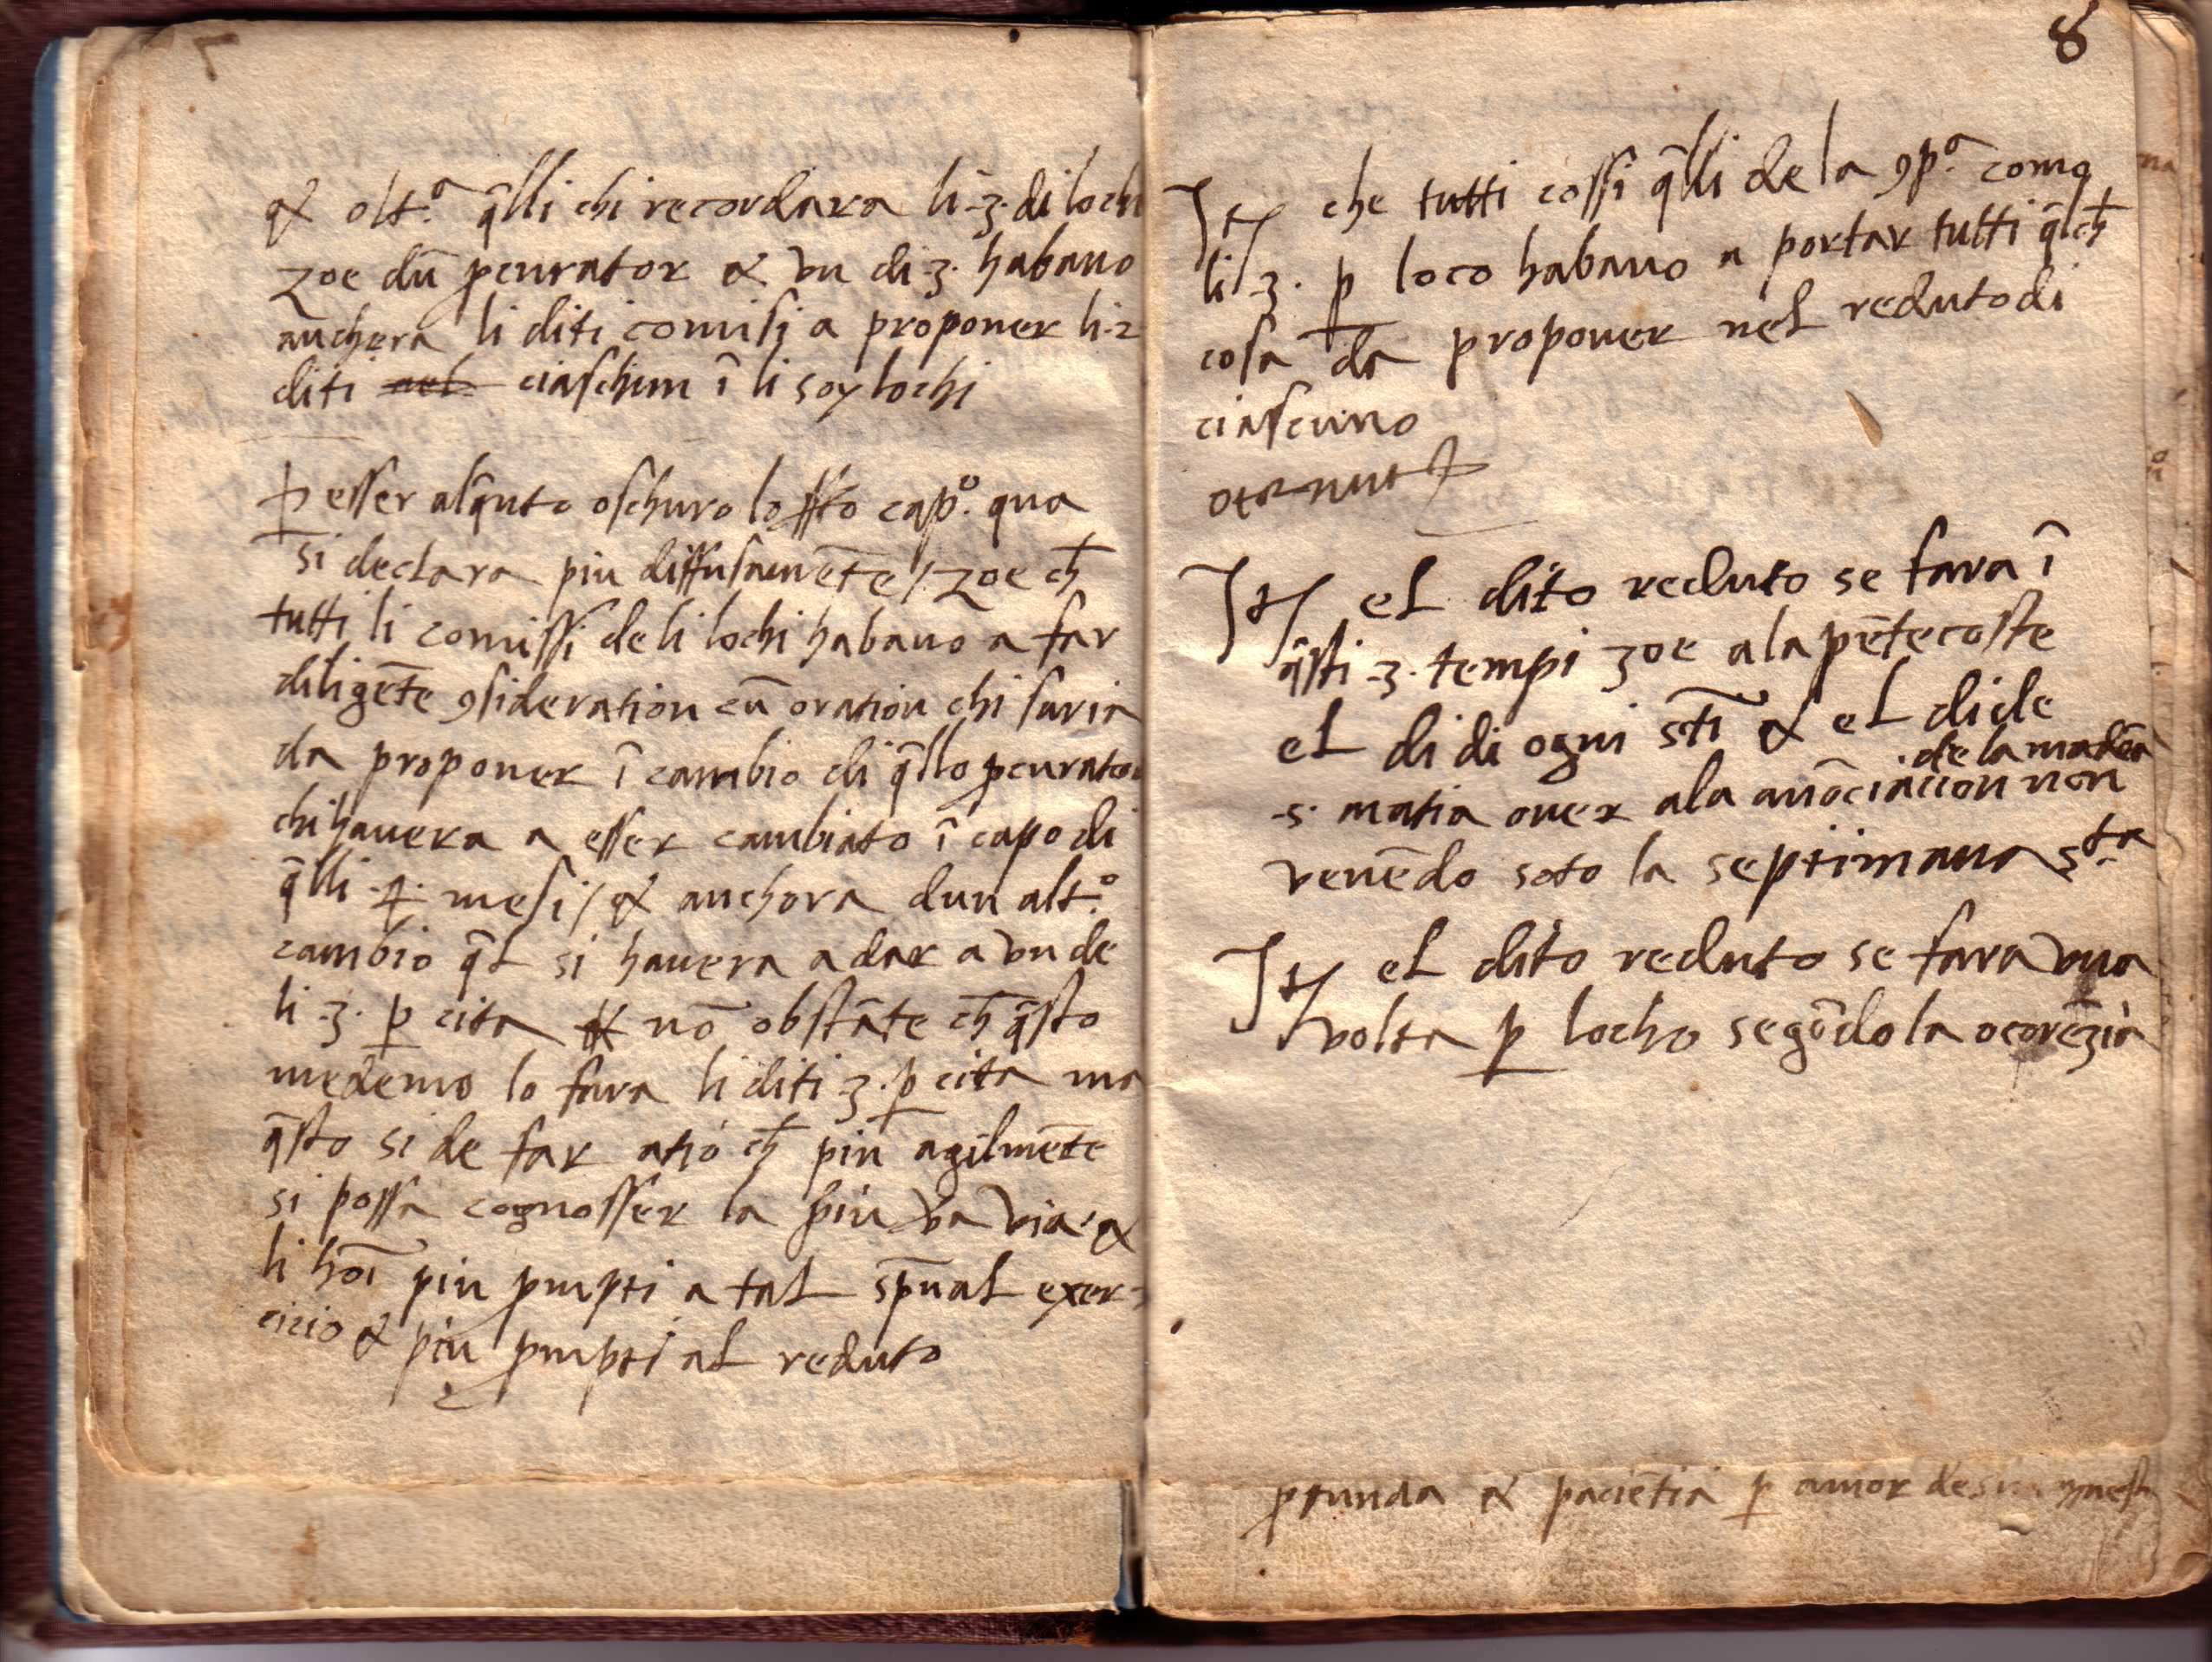 7
& olt.ª q̃lli chi recordara li .3. di lochi
zoe dũ ꝓcurator & vn di .3. habano
anchora li diti comisi a proponer li .2
diti nel ciaschun ĩ li soy lochi
ꝑ esser alq̃nto oschuro lo sṗto cap.º qua
si declara piu diffusamẽte / zoe cħ
tutti li comissi de li lochi habano a far
diligẽte ꝯsideration cũ oration chi saria
da proponer ĩ cambio di q̃llo ꝓcurator
chi hauera a esser cambiato ĩ capo di
q̃lli .4. mesi / & anchora dun alt.º
cambio q̃l si hauera a dar a vn de
li .3. ꝑ cita nõ obstãte cħ q̃sto
medemo lo fara li diti .3. ꝑ cita ma
q̃sto si de far atió cħ piu agilmẽte
si possa cognosser la piu va via &
li hoĩ piu ꝓmpti a tal sp̃ual exer-
cicio & piu ꝓmpti al reduto
8
Itꝫ che tutti cossi q̃lli de la ꝯp.ª como
li .3. ꝑ loco habano a portar tutti q̃lcħ
cosa da proponer nel reduto di
ciascuno
Itꝫ el dito reduto se fara ĩ
q̃sti .3. tempi zoe a la pẽtecoste
el di di ogni stĩ & el di de
de la madõa
.s. matia ouer ala anõciacion non
venẽdo soto la septimana s.ta
Itꝫ el dito reduto se fara vna
volta ꝑ locho segõdo la ocorẽzia
& paciẽtia ꝑ amor de